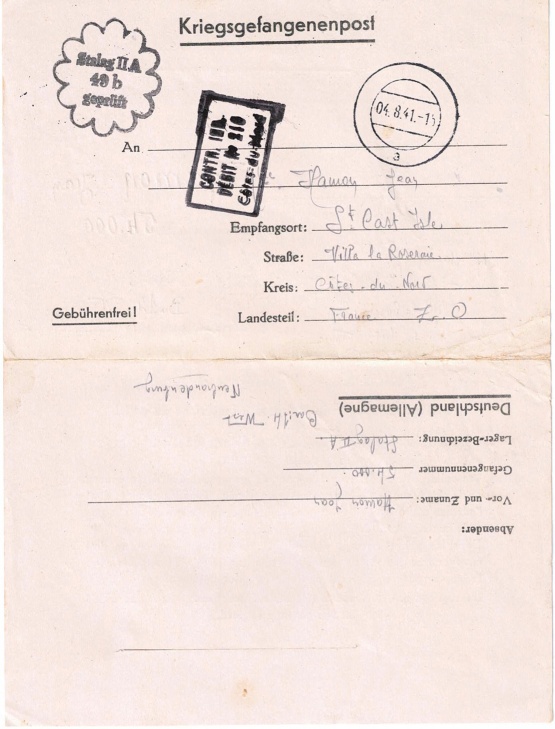 Kriegsgefangenenpost
Stalag II A
49 b
geprüft
CONTR. IND.
DÉBIT No 210
Côtes-du-Nord
04.8.41.-15
a
An
Hamon Jean
Empfangsort: St Cast Isle
Straße: Villa la Roseraie
Kreis: Côtes-du-Nord
Gebührenfrei!
Landesteil: France Z.O
Absender:
Vor- und Zuname: Hamon Jean
Gefangenennummer 54.000.
Lager-Bezeichnung: Stalag II A
Deutschland (Allemagne)
Neubrandenburg